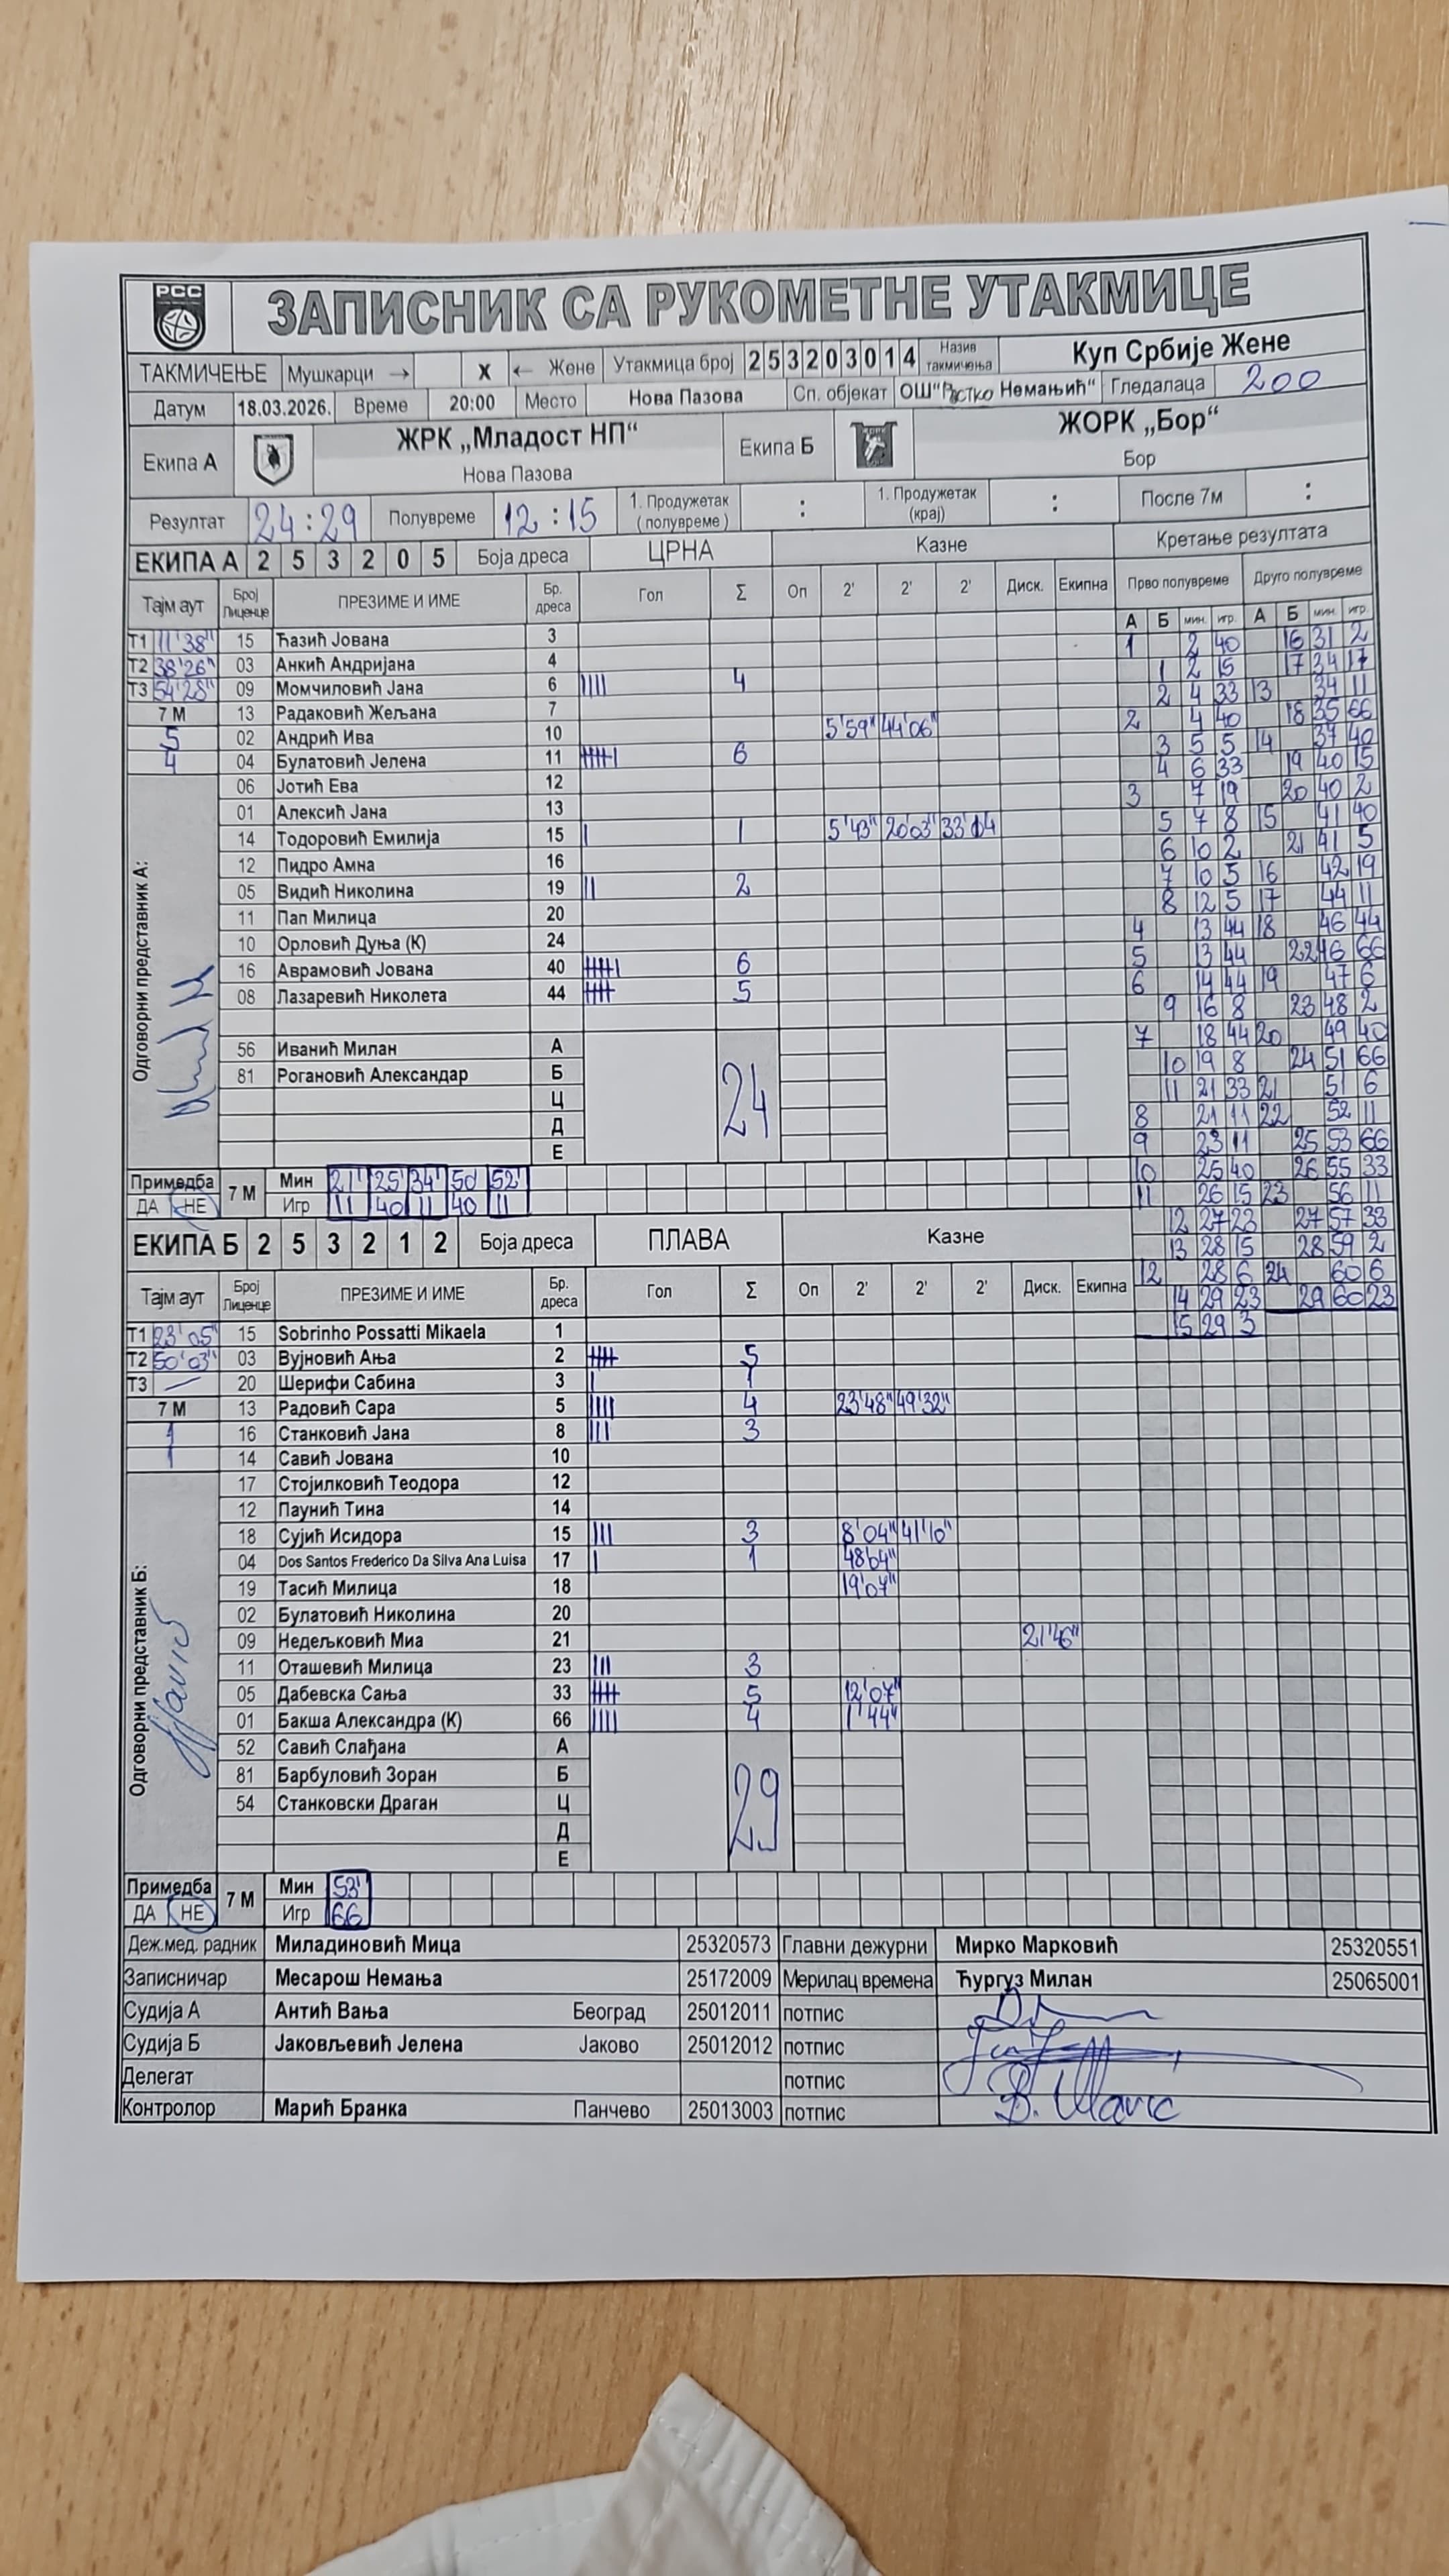 РСС
ЗАПИСНИК СА РУКОМЕТНЕ УТАКМИЦЕ
ТАКМИЧЕЊЕ Мушкарци → X ← Жене Утакмица број 2 5 3 2 0 3 0 1 4 Назив такмичења Куп Србије Жене
Датум 18.03.2026. Време 20:00 Место Нова Пазова Сп. објекат ОШ"Растко Немањић" Гледалаца 200
Екипа А ЖРК „Младост НП“ Екипа Б ЖОРК „Бор“
Нова Пазова Бор
Резултат 24:29 Полувреме 12:15 1. Продужетак (полувреме) : 1. Продужетак (крај) : После 7м :
ЕКИПА А 2 5 3 2 0 5 Боја дреса ЦРНА Казне Кретање резултата
Тајм аут Број Лиценце ПРЕЗИМЕ И ИМЕ Бр. дреса Гол Σ Оп 2' 2' 2' Диск. Екипна Прво полувреме Друго полувреме
А Б мин. игр. А Б мин. игр.
T1 11'38" 15 Ћазић Јована 3 1 2 40 16 31 2
T2 38'26" 03 Анкић Андријана 4 1 2 15 17 34 17
T3 54'28" 09 Момчиловић Јана 6 |||| 4 2 4 33 13 34 11
7 М 13 Радаковић Жељана 7 2 4 40 18 35 66
5 02 Андрић Ива 10 5'59" 44'06" 3 5 5 14 37 40
4 04 Булатовић Јелена 11 |||||| 6 4 6 33 19 40 15
06 Јотић Ева 12 3 7 19 20 40 2
01 Алексић Јана 13 5 7 8 15 41 40
14 Тодоровић Емилија 15 | 1 5'43" 20'03" 33'14 6 10 2 21 41 5
12 Пидро Амна 16 7 10 5 16 42 19
05 Видић Николина 19 || 2 8 12 5 17 44 11
11 Пап Милица 20 4 13 44 18 46 44
10 Орловић Дуња (К) 24 5 13 44 22 46 66
16 Аврамовић Јована 40 |||||| 6 6 14 44 19 47 6
08 Лазаревић Николета 44 ||||| 5 9 16 8 23 48 2
7 18 44 20 49 40
56 Иванић Милан А 10 19 8 24 51 66
81 Рогановић Александар Б 11 21 33 21 51 6
Ц 24 8 21 11 22 52 11
Д 9 23 11 25 53 66
Е 10 25 40 26 55 33
Одговорни представник А:
Примедба 7 М Мин 21' 25' 34' 50' 52' 11 26 15 23 56 11
ДА НЕ Игр 11 40 11 40 11 12 27 23 27 57 33
ЕКИПА Б 2 5 3 2 1 2 Боја дреса ПЛАВА Казне 13 28 15 28 59 2
Тајм аут Број Лиценце ПРЕЗИМЕ И ИМЕ Бр. дреса Гол Σ Оп 2' 2' 2' Диск. Екипна 12 28 6 24 60 6
14 29 23 29 60 23
T1 23'05" 15 Sobrinho Possatti Mikaela 1 15 29 3
T2 50'03" 03 Вујновић Ања 2 ||||| 5
T3 — 20 Шерифи Сабина 3 | 1
7 М 13 Радовић Сара 5 |||| 4 23'48" 49'32"
1 16 Станковић Јана 8 ||| 3
1 14 Савић Јована 10
17 Стојилковић Теодора 12
12 Паунић Тина 14
18 Сујић Исидора 15 ||| 3 8'04" 41'10"
04 Dos Santos Frederico Da Silva Ana Luisa 17 | 1
19 Тасић Милица 18 19'07"
02 Булатовић Николина 20
09 Недељковић Миа 21 21'46"
11 Оташевић Милица 23 ||| 3
05 Дабевска Сања 33 ||||| 5 12'07"
01 Бакша Александра (К) 66 |||| 4 1'44"
52 Савић Слађана А
81 Барбуловић Зоран Б
54 Станковски Драган Ц 29
Д
Е
Одговорни представник Б:
Примедба 7 М Мин 53'
ДА НЕ Игр 66
Деж.мед. радник Миладиновић Мица 25320573 Главни дежурни Мирко Марковић 25320551
Записничар Месарош Немања 25172009 Мерилац времена Ћургуз Милан 25065001
Судија А Антић Вања Београд 25012011 потпис
Судија Б Јаковљевић Јелена Јаково 25012012 потпис
Делегат потпис
Контролор Марић Бранка Панчево 25013003 потпис B. Marić